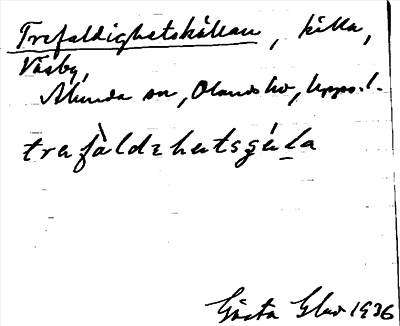 Trefaldighetskällan, källa,
Väsby,
Almunda sn, Olands hd, Upps. l.
trefàldᵻhetsçéla
Gösta Glad 1936